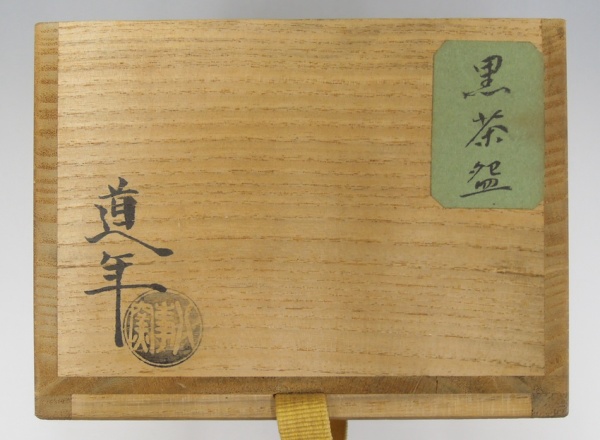 黒茶盌
道年